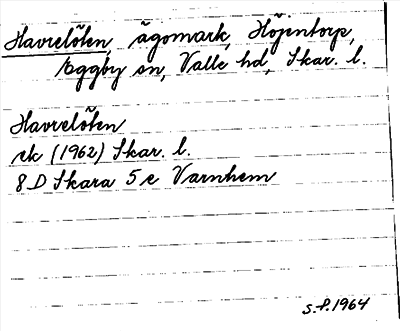 Havrelöten, ägomark, Höjentorp,
Eggby sn, Valle hd, Skar. l.
Havrelöten
ek (1962) Skar. l.
8D Skara 5e Varnhem
S.P. 1964